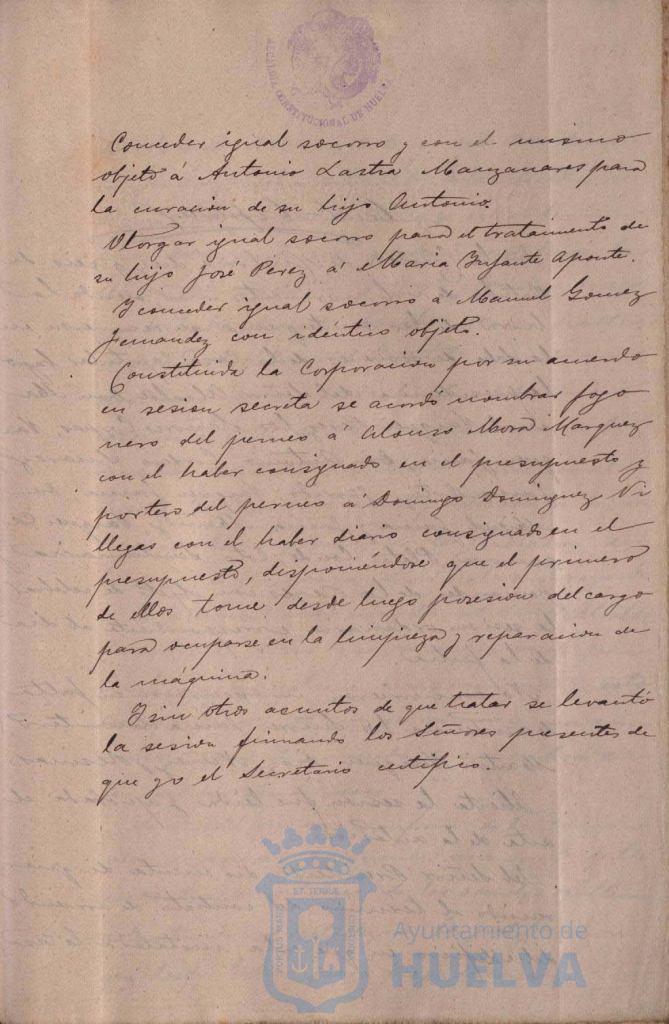 ALCALDIA CONSTITUCIONAL DE HUELVA
Conceder igual socorro y con el mismo
objeto á Antonio Lastra Manzanares para
la curación de su hijo Antonio.
Otorgar igual socorro para el tratamiento de
su hijo José Perez á Maria Infante Aponte.
Y conceder igual socorro á Manuel Gomez
Fernandez con idéntico objeto.
Constituida la Corporacion por su acuerdo
en sesion secreta se acordó nombrar fogo
nero del perneo á Alonso Mora Marquez
con el haber consignado en el presupuesto y
portero del perneo á Domingo Dominguez Vi
llegas con el haber diario consignado en el
presupuesto, disponiéndose que el primero
de ellos tome desde luego posesion del cargo
para ocuparse en la limpieza y reparacion de
la máquina.
Y sin otros asuntos de que tratar se levantó
la sesion firmando los Señores presentes de
que yo el Secretario certifico.
PORTUS MARIS ET TERRAE CUSTODIA
Ayuntamiento de
HUELVA